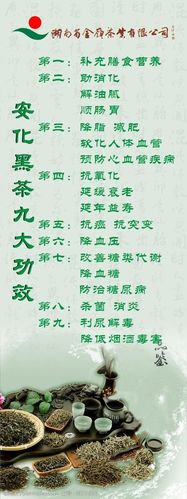 湖南省金湘茶业有限公司
安化黑茶九大功效
第一：补充膳食营养
第二：助消化
解油腻
顺肠胃
第三：降脂 减肥
软化人体血管
预防心血管疾病
第四：抗氧化
延缓衰老
延年益寿
第五：抗癌 抗突变
第六：降血压
第七：改善糖类代谢
降血糖
防治糖尿病
第八：杀菌 消炎
第九：利尿解毒
降低烟酒毒害